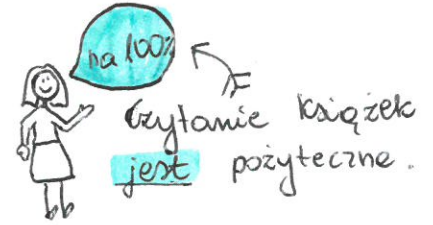 na 100%
Czytanie książek
jest pożyteczne.